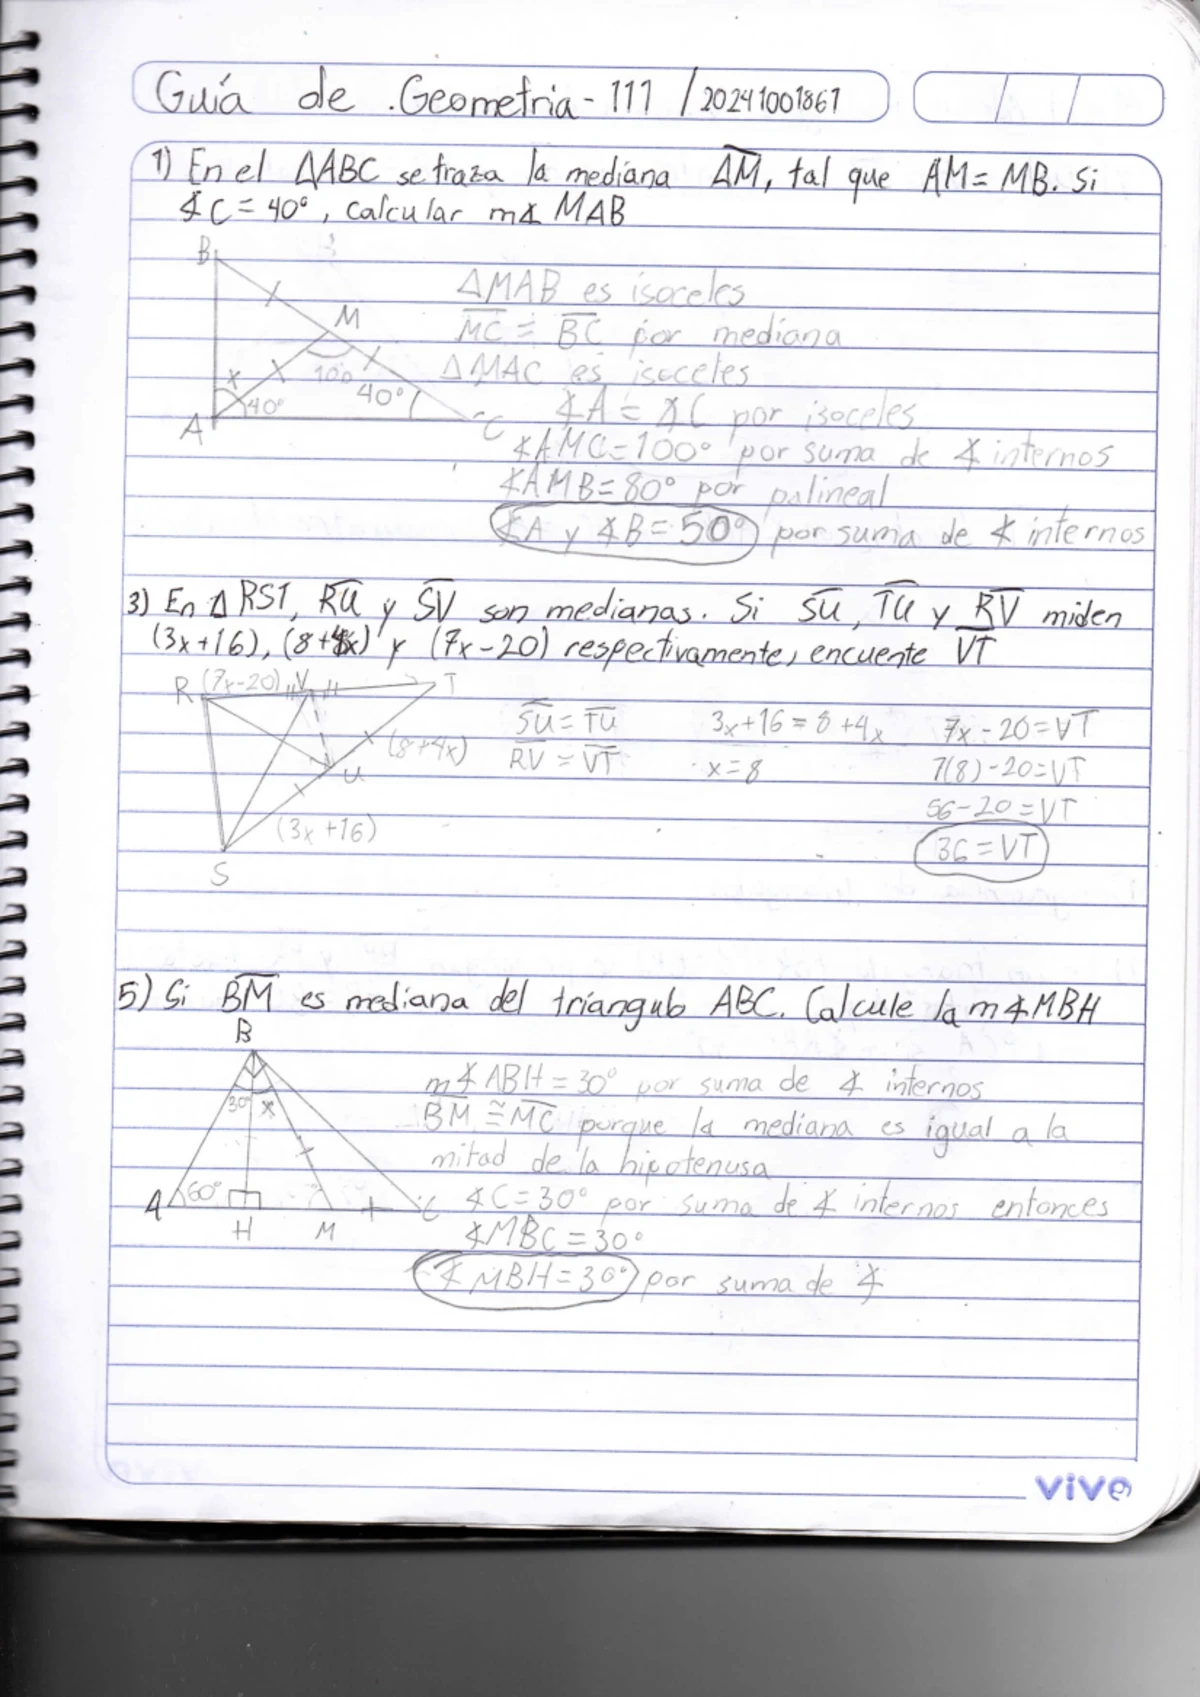 Guía de .Geometria - 111 / 20241001861
1) En el △ABC se traza la mediana AM, tal que AM = MB. Si
∡C = 40°, calcular m∡ MAB
B
M
x
100
40°
40°
A
C
△MAB es isoceles
MC = BC por mediana
△MAC es isoceles
∡A = ∡C por isoceles
∡AMC = 100° por suma de ∡ internos
∡AMB = 80° por palineal
∡A y ∡B = 50° por suma de ∡ internos
3) En △ RST, RU y SV son medianas. Si SU, TU y RV miden
(3x+16), (8+4x) y (7x-20) respectivamente, encuente VT
R (7x-20) V T
(8+4x)
U
(3x+16)
S
SU = TU 3x+16 = 8+4x 7x-20 = VT
RV = VT x=8 7(8)-20=VT
56-20=VT
36=VT
5) Si BM es mediana del triangulo ABC. Calcule la m∡MBH
B
30° x
A 60° C
H M
m∡ABH = 30° por suma de ∡ internos
BM ≅ MC porque la mediana es igual a la
mitad de la hipotenusa
∡C = 30° por suma de ∡ internos entonces
∡MBC = 30°
∡MBH = 30° por suma de ∡
vive